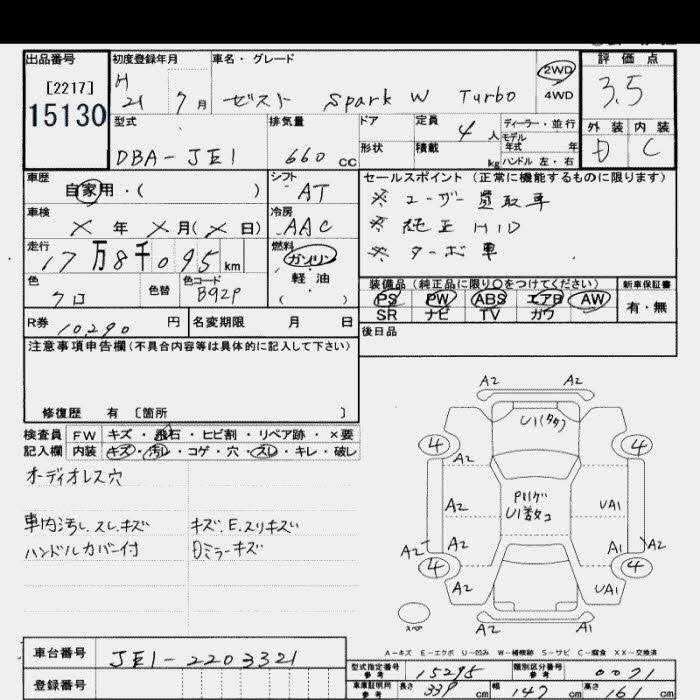 出品番号 初度登録年月 車名・グレード 2WD 評価点
[2217] H 21 7月 ゼスト Spark W Turbo 4WD 3.5
15130 型式 排気量 ドア 定員 4人 ディーラー・並行 外装 内装
モデル年式 年
DBA-JE1 660cc 形状 積載 kg ハンドル 左・右 C
車歴 シフト セールスポイント(正常に機能するものに限ります)
自家用・( ) AT ※ユーザー買取車
車検 冷房 ※純正HID
X年X月(X日) AAC ※ターボ車
走行 燃料
17万8千095km ガソリン
色 色替 色コード 軽油 装備品(純正品に限り〇をつけてください) 新車保証書
クロ B92P ( ) PS PW ABS エアB AW 有・無
SR ナビ TV カワ
R券 10,290円 名変期限 月 日 後日品
注意事項申告欄(不具合内容等は具体的に記入して下さい)
修復歴 有 〔箇所 〕
検査員 FW キズ・飛石・ヒビ割・リペア跡・×要
記入欄 内装 キズ・汚レ・コゲ・穴・スレ・キレ・破レ
オーディオレス穴
車内汚レ.スレ.キズ キズ.E.スリキズい
ハンドルカバー付 Dミラーキズ
A2 A2
U1(タタ)
4 A2 4
A2 UA1
U1数コ
A2 A2 A1 A2
4 4
A2 UA1
スペア A2 A1
A-キズ E-エクボ U-凹み W-補修跡 S-サビ C-腐食 XX-交換済
車台番号 JE1-2203321
型式指定番号 参考 15295 類別区分番号 参考 0071
登録番号 車庫証明用 参考 長さ 339cm 幅 147cm 高さ 161cm